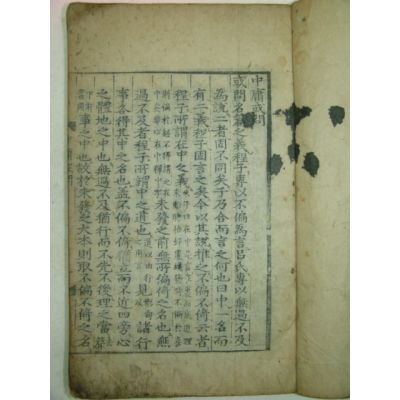 中庸或問
或問名篇之義程子專以不偏為言呂氏專以無過不及
為說二者固不同矣子乃合而言之何也曰中一名而
有二義程子固言之矣今以其說推之不偏不倚云者
程子所謂在中之義未發之前無所偏倚之名也無
過不及者程子所謂中之道也見諸行
事各得其中之名也蓋不偏不倚猶立而不近四旁心
之體地之中也無過不及猶行而不先不後理之當
事之中也故於未發之大本則取不偏不倚之名